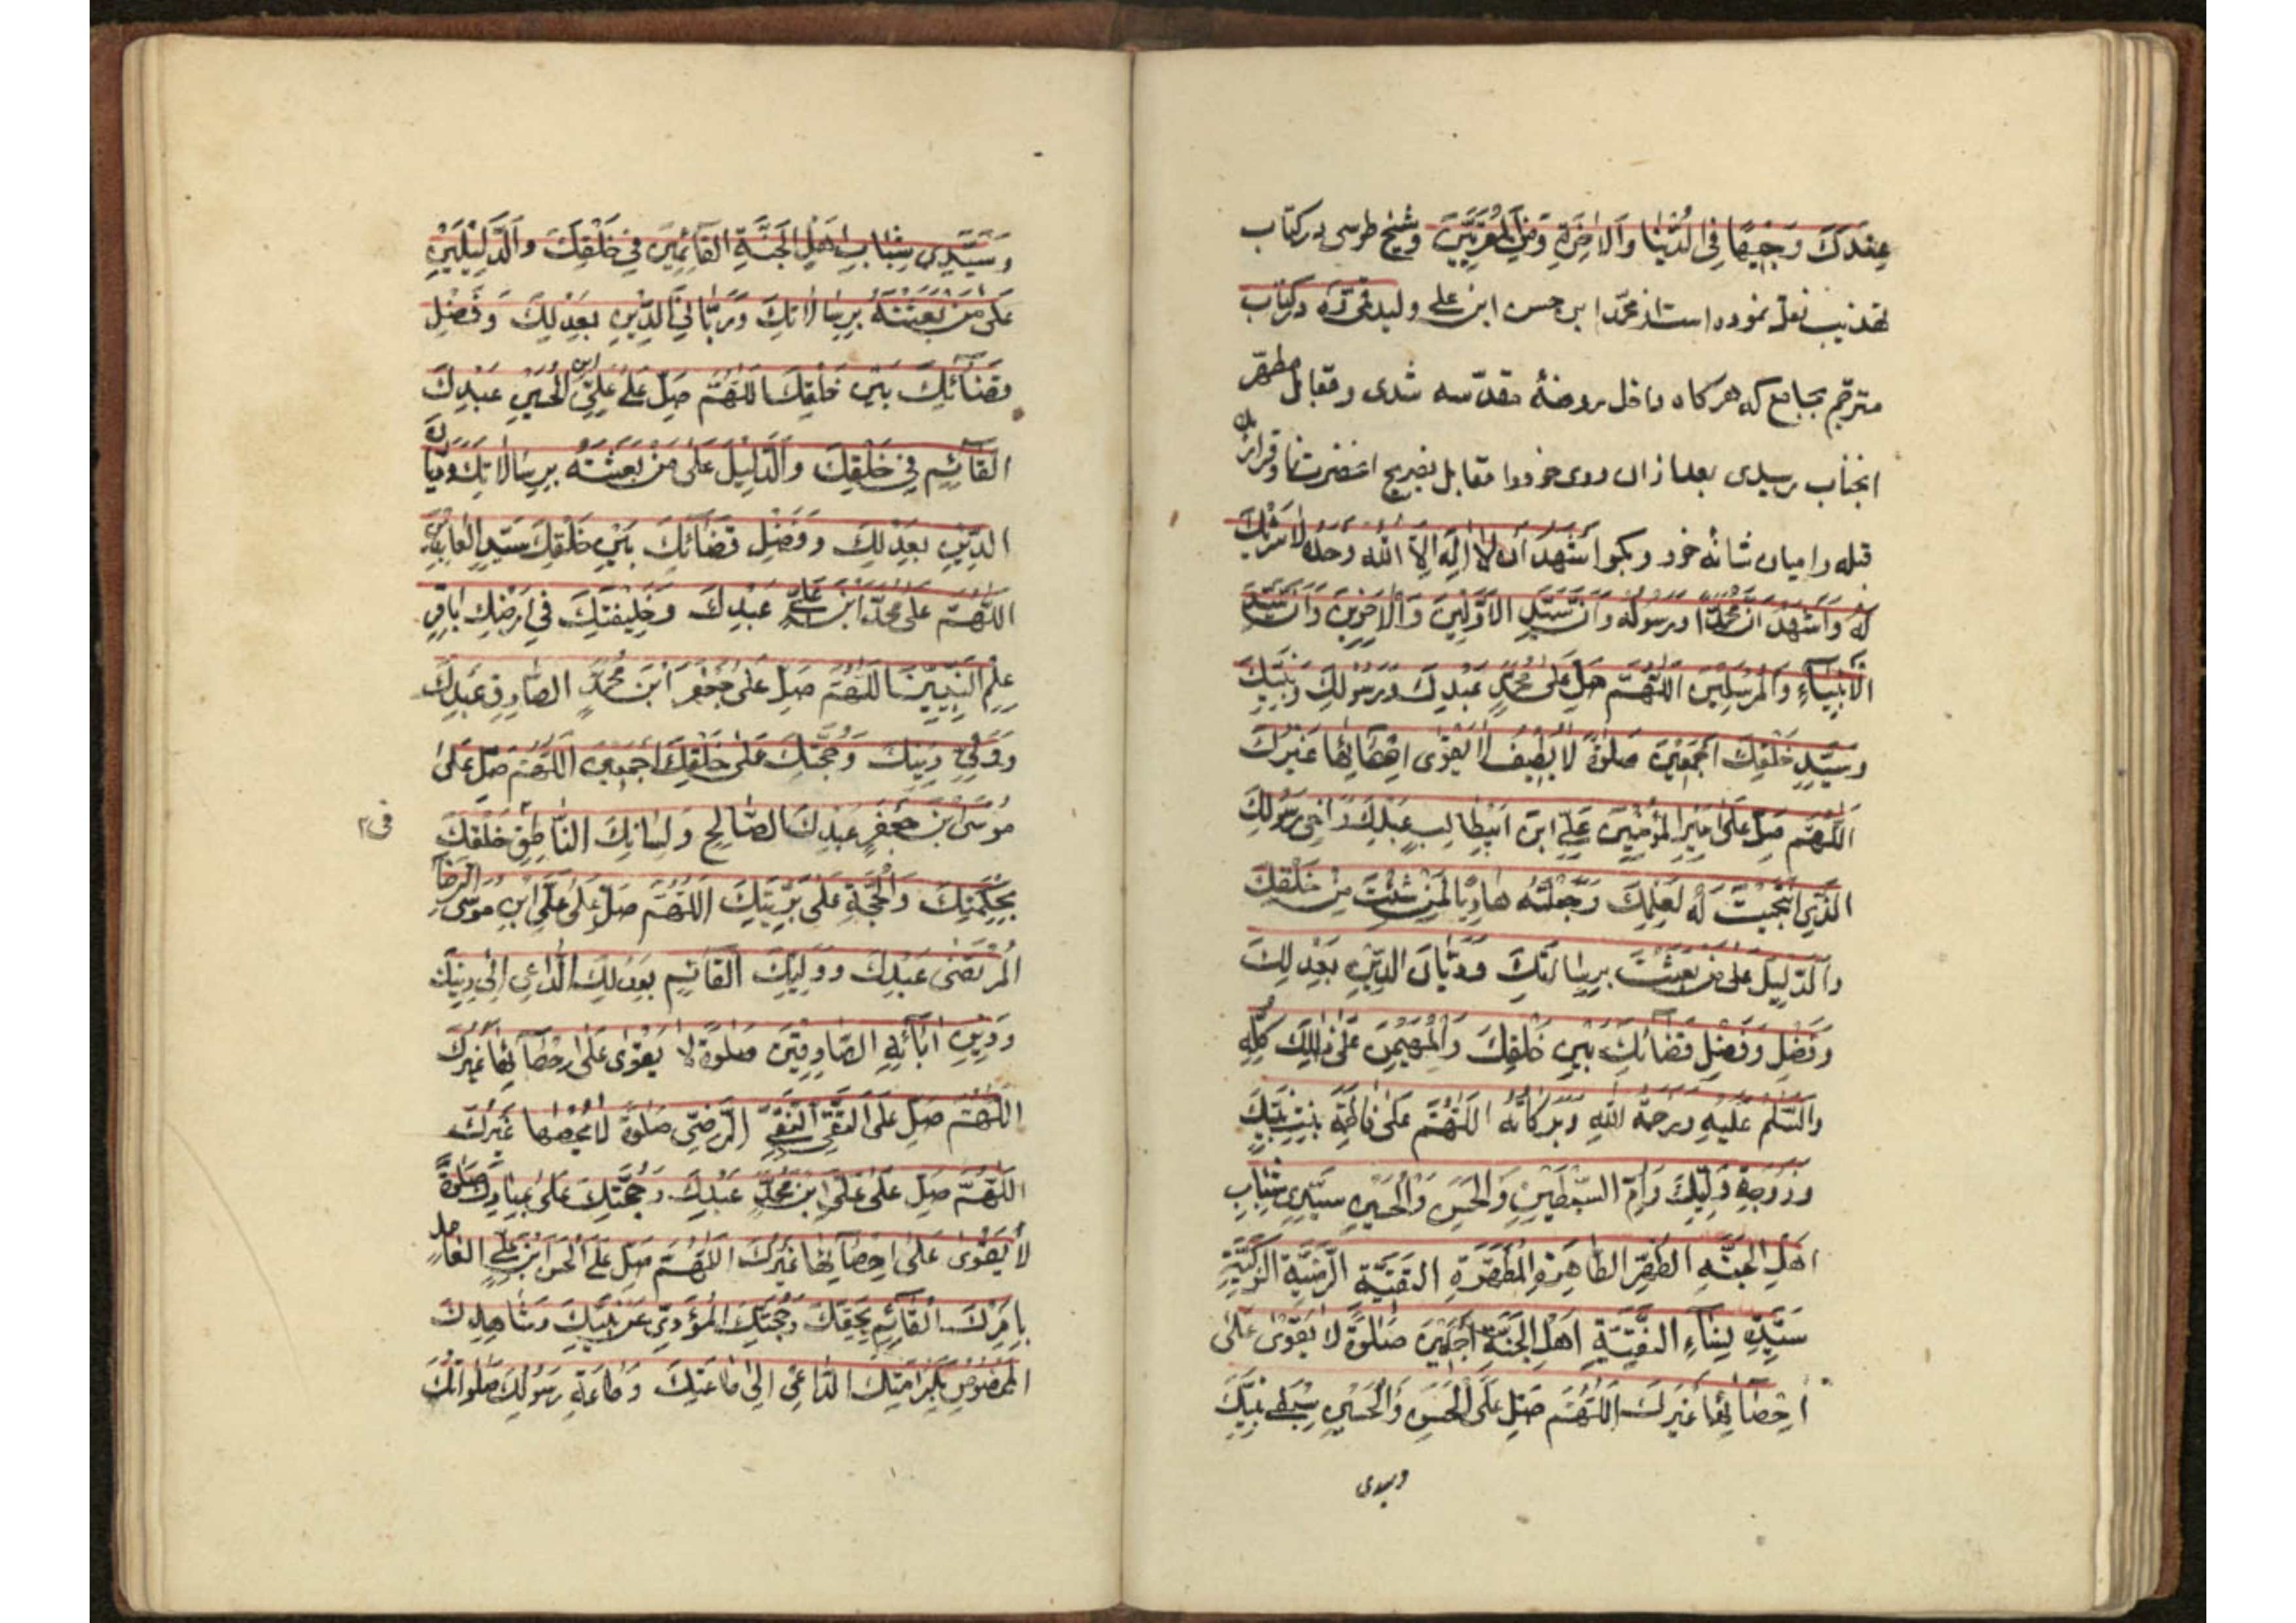 عِنْدَكَ وَجِيهًا فِي الدُّنْيَا وَالْاٰخِرَةِ وَمِنَ الْمُقَرَّبِيْنَ وشیخ طوسی در کتاب
تهذیب نقل نموده است از محمّد ابن حسن ابن علی ولید قمی که در کتاب
مترجم بجامع که هرکاه داخل روضهٔ مقدّسه شدی و مقابل مطهّر
انجناب رسیدی بعد ازان روی خود را مقابل بضریح انحضرت نما و قرار ده
قبله را میان شانه خود و بکو اَشْهَدُ اَنْ لَا اِلٰهَ اِلَّا اللّٰهُ وَحْدَهُ لَا شَرِيْكَ
لَهُ وَاَشْهَدُ اَنَّ مُحَمَّدًا وَرَسُولُهُ وَاَنَّ سَيِّدَ الْاَوَّلِيْنَ وَالْاٰخِرِيْنَ وَاَنَّ سَيِّدَ
الْاَنْبِيَآءِ وَالْمُرْسَلِيْنَ اللّٰهُمَّ صَلِّ عَلٰى مُحَمَّدٍ عَبْدِكَ وَرَسُوْلِكَ وَنَبِيِّكَ
وَسَيِّدِ خَلْقِكَ اَجْمَعِيْنَ صَلٰوةً لَا يُطِيْقُ لَا يَقْوٰى اِحْصَائِهَا غَيْرُكَ
اَللّٰهُمَّ صَلِّ عَلٰى اَمِيْرِ الْمُؤْمِنِيْنَ عَلِيِّ ابْنِ اَبِيْطَالِبٍ عَبْدِكَ وَاَخِى رَسُوْلِكَ
الَّذِي انْتَجَبْتَ لَهُ لِعِلْمِكَ وَجَعَلْتَهُ هَادِيًا لِمَنْ شِئْتَ مِنْ خَلْقِكَ
وَالدَّلِيْلَ عَلٰى مَنْ بَعَثْتَ بِرِسَالَتِكَ وَدَيَّانَ الدِّيْنِ بِعَدْلِكَ
وَفَضْلِ وَفَصْلِ قَضَائِكَ بَيْنَ خَلْقِكَ وَالْمُهَيْمِنَ عَلٰى ذٰلِكَ كُلِّهِ
وَالسَّلٰمُ عَلَيْهِ وَرَحْمَةُ اللّٰهِ وَبَرَكَاتُهُ اَللّٰهُمَّ عَلٰى فَاطِمَةَ بِنْتِ نَبِيِّكَ
وَزَوْجَةِ وَلِيِّكَ وَاُمِّ السِّبْطَيْنِ وَالْحَسَنِ وَالْحُسَيْنِ سَيِّدَيْ شَبَابِ
اَهْلِ الْجَنَّةِ الطُّهْرِ الطَّاهِرَةِ الْمُطَهَّرَةِ التَّقِيَّةِ الرَّضِيَّةِ الزَّكِيَّةِ
سَيِّدَةِ نِسَآءِ النَّقِيَّةِ اَهْلِ الْجَنَّةِ اَجْمَعِيْنَ صَلٰوةً لَا يَقْوٰى عَلٰى
اِحْصَائِهَا غَيْرُكَ اَللّٰهُمَّ صَلِّ عَلَى الْحَسَنِ وَالْحُسَيْنِ سِبْطَيْ نَبِيِّكَ
وسیدی
وَسَيِّدَيْ شَبَابِ اَهْلِ الْجَنَّةِ الْقَآئِمَيْنِ فِي خَلْقِكَ وَالدَّلِيْلَيْنِ
عَلٰى مَنْ بَعَثْتَهُ بِرِسَالَاتِكَ وَدَيَّانَيِ الدِّيْنِ بِعَدْلِكَ وَفَصْلِ
قَضَآئِكَ بَيْنَ خَلْقِكَ اَللّٰهُمَّ صَلِّ عَلٰى عَلِيِّ ابن الْحُسَيْنِ عَبْدِكَ
الْقَآئِمِ فِي خَلْقِكَ وَالدَّلِيْلَ عَلٰى مَنْ بَعَثْتَهُ بِرِسَالَاتِكَ وَدَيَّانَ
الدِّيْنِ بِعَدْلِكَ وَفَصْلِ قَضَائِكَ بَيْنَ خَلْقِكَ سَيِّدِ الْعَابِدِيْنَ
اَللّٰهُمَّ عَلٰى مُحَمَّدِ ابْنِ عَلِيٍّ عَبْدِكَ وَخَلِيْفَتِكَ فِي اَرْضِكَ بَاقِرِ
عِلْمِ النَّبِيِّيْنَ اَللّٰهُمَّ صَلِّ عَلٰى جَعْفَرِ ابْنِ مُحَمَّدٍ الصَّادِقِ عَبْدِكَ
وَوَلِيِّ دِيْنِكَ وَحُجَّتِكَ عَلٰى خَلْقِكَ اَجْمَعِيْنَ اَللّٰهُمَّ صَلِّ عَلٰى
مُوْسَى ابْنِ جَعْفَرٍ عَبْدِكَ الصَّالِحِ وَلِسَانِكَ النَّاطِقِ خَلْقِكَ
فی
بِحِكْمَتِكَ وَالْحُجَّةِ عَلٰى بَرِيَّتِكَ اَللّٰهُمَّ صَلِّ عَلٰى عَلِيِّ ابْنِ مُوْسَى الرِّضَا
الْمُرْتَضٰى عَبْدِكَ وَوَلِيِّكَ الْقَآئِمِ بِعَدْلِكَ الدَّاعِي اِلٰى دِيْنِكَ
وَدِيْنِ اٰبَآئِهِ الصَّادِقِيْنَ صَلٰوةً لَا يَقْوٰى عَلٰى اِحْصَآئِهَا غَيْرُكَ
اَللّٰهُمَّ صَلِّ عَلَى التَّقِيِّ النَّقِيِّ الرَّضِيِّ صَلٰوةً لَا يُحْصِهَا غَيْرُكَ
اَللّٰهُمَّ صَلِّ عَلٰى عَلِيِّ ابْنِ مُحَمَّدٍ عَبْدِكَ وَحُجَّتِكَ عَلٰى عِبَادِكَ صَلٰوةً
لَا يَقْوٰى عَلٰى اِحْصَآئِهَا غَيْرُكَ اَللّٰهُمَّ صَلِّ عَلَى الْحَسَنِ ابْنِ عَلِيٍّ الْعَامِلِ
بِاَمْرِكَ الْقَآئِمِ بِحَقِّكَ وَحُجَّتِكَ الْمُؤَدِّيْ عَنْ نَبِيِّكَ وَشَاهِدِكَ
الْمَخْصُوْصِ بِكَرَامَتِكَ الدَّاعِي اِلٰى طَاعَتِكَ وَطَاعَةِ رَسُوْلِكَ صَلَوَاتُكَ